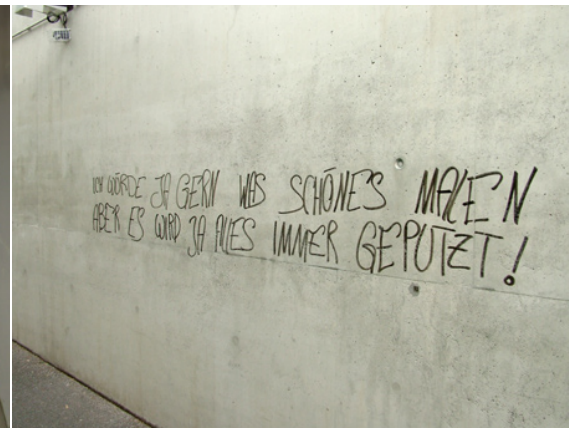 ICH WÜRDE JA GERN WAS SCHÖNES MALEN
ABER ES WIRD JA ALLES IMMER GEPUTZT!